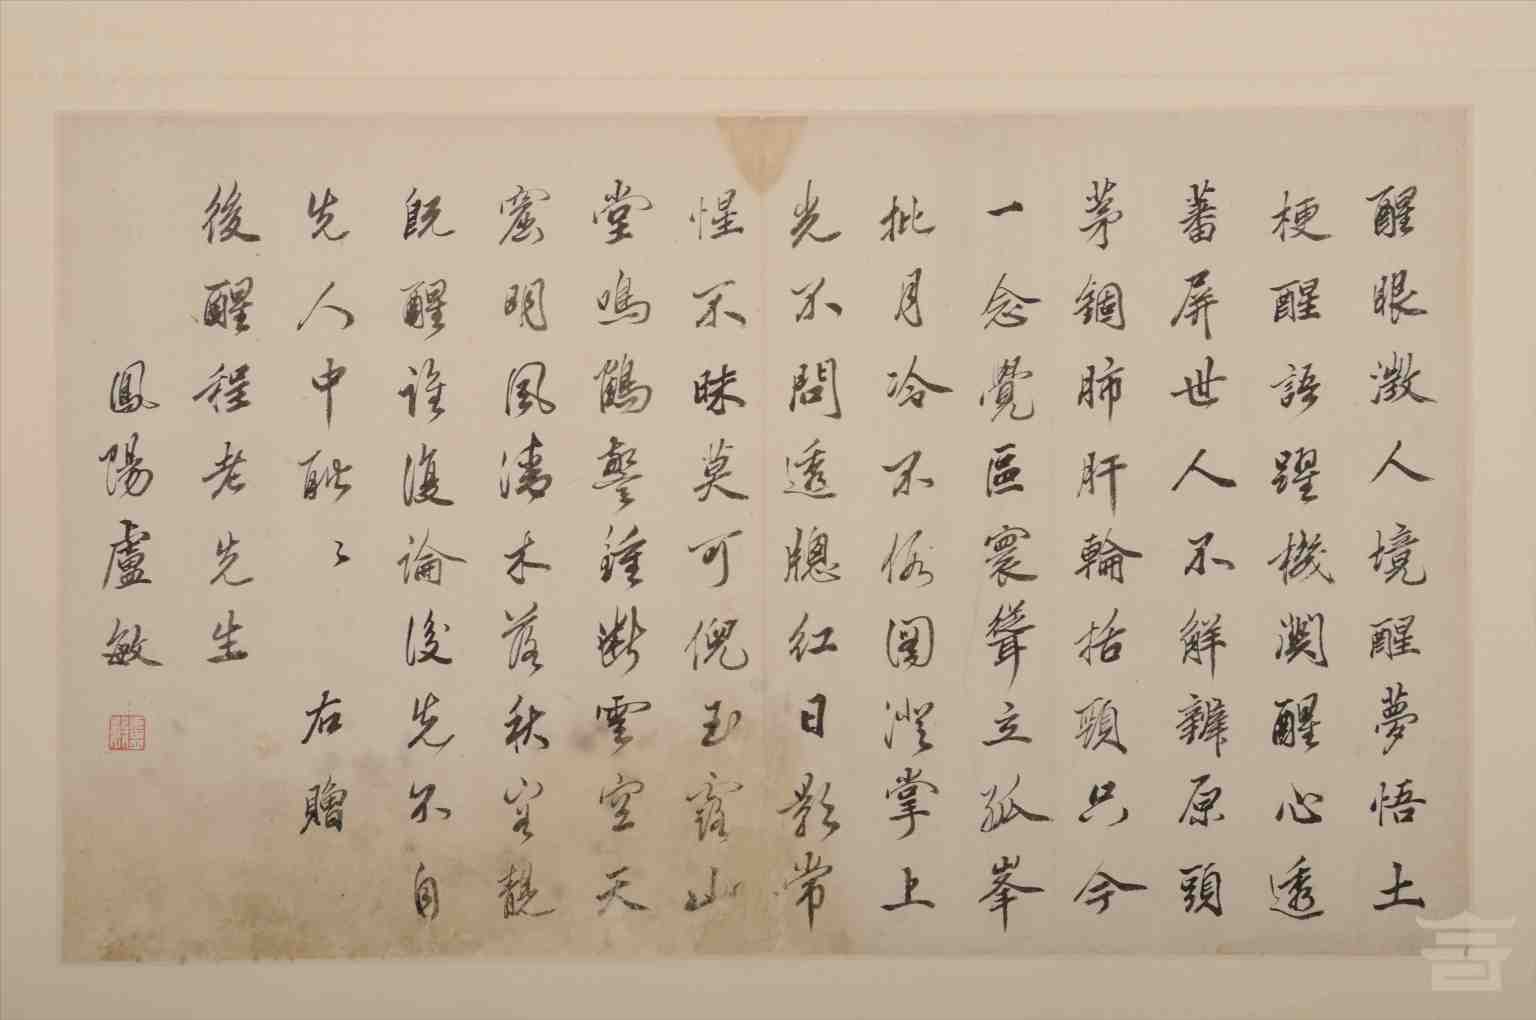 醒眼澂人境醒夢悟土
梗醒語躍機淵醒心透
蕃屏世人不解辨原頭
茅錮肺肝輪括頸只今
一念覺區寰聳立孤峯
批月冷不倚圖澄掌上
光不問透牕紅日影常
惺不昧莫可倪玉露山
堂鳴鶴警鐘斷雲空天
窟明風清木落秋容靚
既醒誰復論後先不自
先人中耿〻 右贈
後醒程老先生
鳳陽盧敏